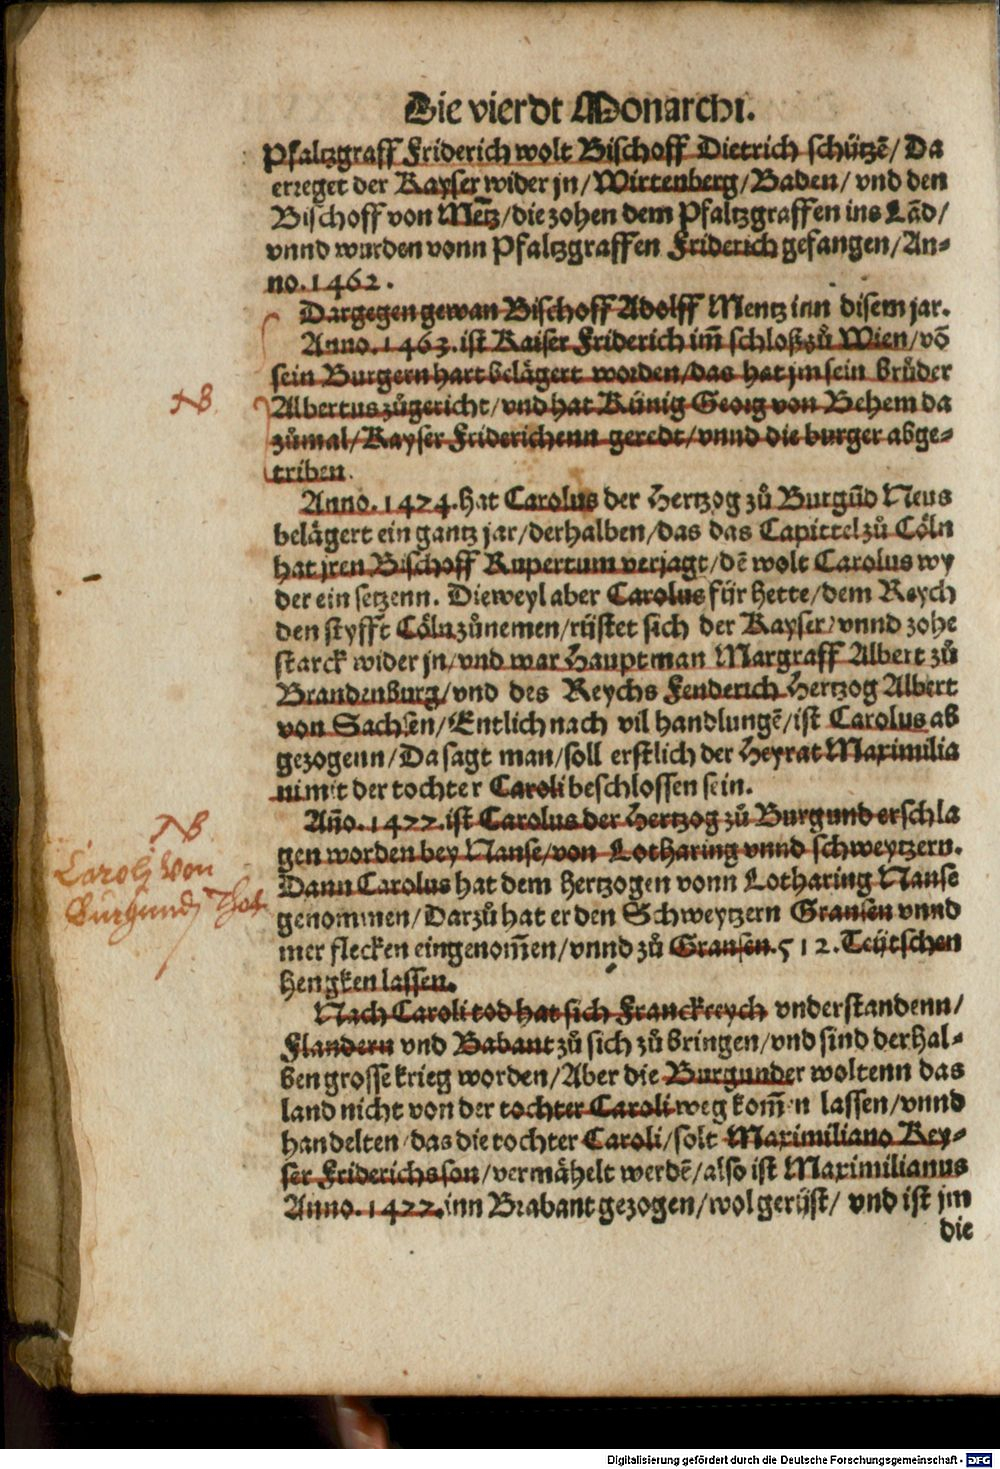 Die vierdt Monarchi.
Pfaltzgraff Friderich wolt Bischoff Dietrich schützẽ/ Da
erreget der Kayser wider jn/ Wirtenberg/ Baden/ vnd den
Bischoff von Metz/ die zohen dem Pfaltzgraffen ins Lãd/
vnnd wurden vonn Pfaltzgraffen Friderich gefangen/ An-
no. 1462.
Dargegen gewan Bischoff Adolff Mentz inn disem jar.
Anno. 1463. ist Kaiser Friderich im̃ schloß zů Wien/ võ
sein Burgern hart belägert worden/ das hat jm sein brůder
NB
Albertus zůgericht/ vnd hat Künig Georg von Behem da
zůmal/ Kayser Friderichenn geredt/ vnnd die burger abge-
triben.
Anno. 1474. hat Carolus der Hertzog zů Burgũd Neus
belägert ein gantz jar/ derhalben/ das das Capittel zů Cöln
hat jren Bischoff Rupertum verjagt/ dẽ wolt Carolus wy
der ein setzenn. Dieweyl aber Carolus für hette/ dem Reych
den styfft Cöln zůnemen/ rüstet sich der Kayser/ vnnd zohe
starck wider jn/ vnd war Hauptman Margraff Albert zů
Brandenburg/ vnd des Reychs Fenderich Hertzog Albert
von Sachsen/ Entlich nach vil handlungẽ/ ist Carolus ab
gezogenn/ Da sagt man/ soll erstlich der Heyrat Maximilia
ni mit der tochter Caroli beschlossen sein.
NB
Año. 1477. ist Carolus der Hertzog zů Burgund erschla
gen worden bey Nanse/ von Lotharing vnnd schweytzern.
Carolj von
Dann Carolus hat dem Hertzogen vonn Lotharing Nanse
Burgundj Thot
genommen/ Darzů hat er den Schweytzern Gransen vnnd
mer flecken eingenom̃en/ vnnd zů Gransen. 512. Teütschen
hengken lassen.
Nach Caroli tod hat sich Franckreych vnderstandenn/
Flandern vnd Babant zů sich zů bringen/ vnd sind derhal-
ben grosse krieg worden/ Aber die Burgunder woltenn das
land nicht von der tochter Caroli weg kom̃en lassen/ vnnd
handelten/ das die tochter Caroli/ solt Maximiliano Key-
ser Friderichs son/ vermähelt werdẽ/ also ist Maximilianus
Anno. 1477. inn Brabant gezogen/ wol gerüst/ vnd ist jm
die
Digitalisierung gefördert durch die Deutsche Forschungsgemeinschaft - DFG